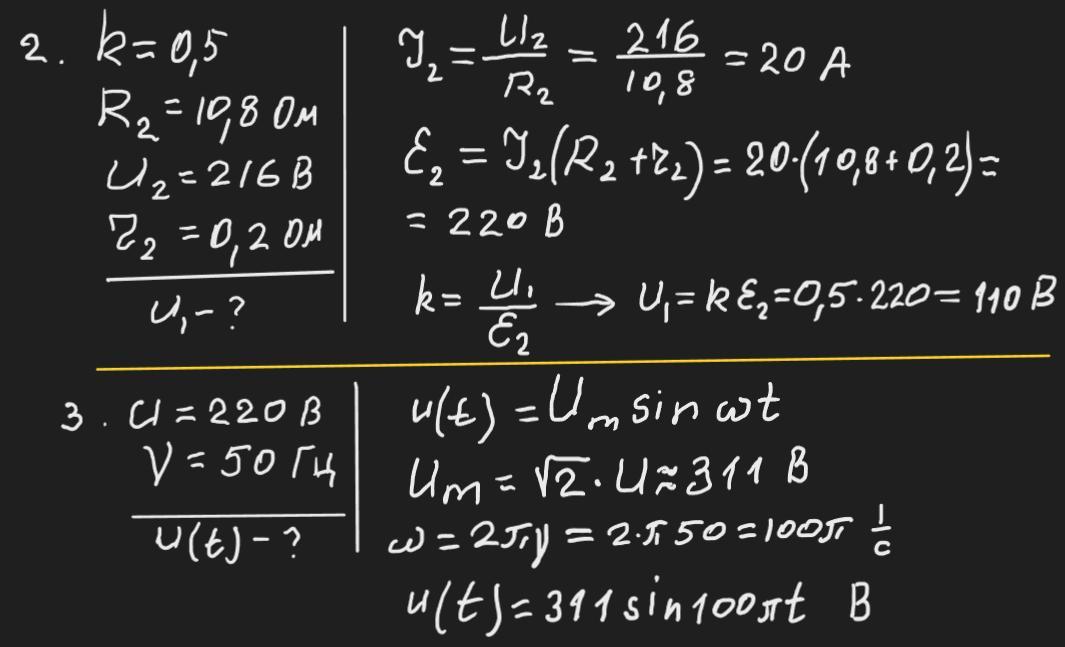 2. k = 0,5
R₂ = 10,8 Ом
U₂ = 216 В
r₂ = 0,2 Ом
U₁ - ?
J₂ = U₂/R₂ = 216/10,8 = 20 А
ℰ₂ = J₂(R₂ + r₂) = 20·(10,8 + 0,2) =
= 220 В
k = U₁/ℰ₂ → U₁ = kℰ₂ = 0,5·220 = 110 В
3. U = 220 В
ν = 50 Гц
u(t) - ?
u(t) = Uₘ sin ωt
Uₘ = √2·U ≈ 311 В
ω = 2πν = 2·π 50 = 100π 1/с
u(t) = 311 sin 100πt В